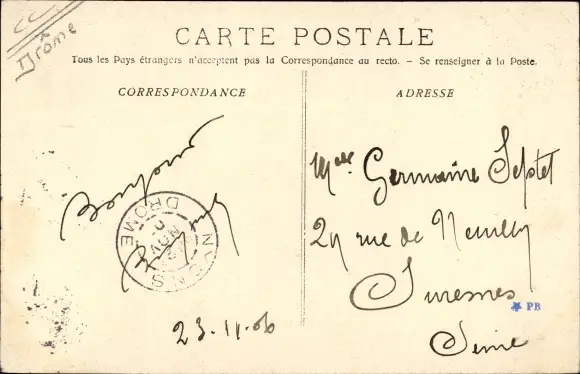 Drôme
CARTE POSTALE
Tous les Pays étrangers n'acceptent pas la Correspondance au recto. - Se renseigner à la Poste.
CORRESPONDANCE
ADRESSE
Bonjour
NYONS
DROME
NOV
23.11.06
Melle Germaine Septet
27 rue de Neuilly
Suresnes
Seine
PB